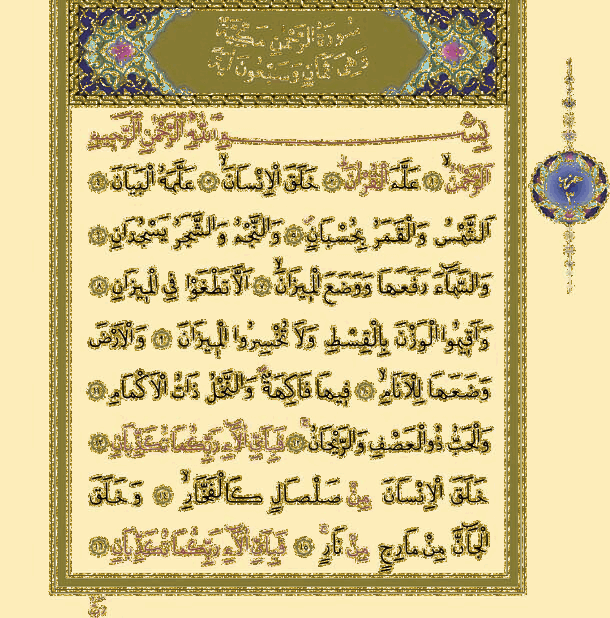 سُورَةُ الرَّحْمٰنِ مَكِّيَّة
بِسْمِ اللّٰهِ الرَّحْمٰنِ الرَّحِيمِ
اَلرَّحْمٰنُۙ ﴿١﴾ عَلَّمَ الْقُرْاٰنَۜ ﴿٢﴾ خَلَقَ الْاِنْسَانَۙ ﴿٣﴾ عَلَّمَهُ الْبَيَانَ ﴿٤﴾
اَلشَّمْسُ وَالْقَمَرُ بِحُسْبَانٍۖ ﴿٥﴾ وَالنَّجْمُ وَالشَّجَرُ يَسْجُدَانِ ﴿٦﴾
وَالسَّمَٓاءَ رَفَعَهَا وَوَضَعَ الْمِيزَانَۙ ﴿٧﴾ اَلَّا تَطْغَوْا فِي الْمِيزَانِ ﴿٨﴾
وَاَقِيمُوا الْوَزْنَ بِالْقِسْطِ وَلَا تُخْسِرُوا الْمِيزَانَ ﴿٩﴾ وَالْاَرْضَ
وَضَعَهَا لِلْاَنَامِۙ ﴿١٠﴾ فِيهَا فَاكِهَةٌۖ وَالنَّخْلُ ذَاتُ الْاَكْمَامِ ﴿١١﴾
وَالْحَبُّ ذُو الْعَصْفِ وَالرَّيْحَانُۚ ﴿١٢﴾ فَبِاَيِّ اٰلَٓاءِ رَبِّكُمَا تُكَذِّبَانِ ﴿١٣﴾
خَلَقَ الْاِنْسَانَ مِنْ صَلْصَالٍ كَالْفَخَّارِۙ ﴿١٤﴾ وَخَلَقَ
الْجَٓانَّ مِنْ مَارِجٍ مِنْ نَارٍۚ ﴿١٥﴾ فَبِاَيِّ اٰلَٓاءِ رَبِّكُمَا تُكَذِّبَانِ ﴿١٦﴾